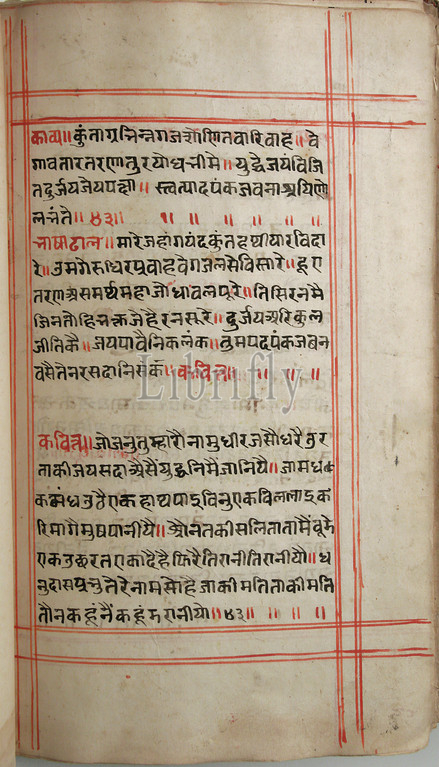 काव्य॥ कुंताग्रभिन्नगजशोणितवारिवाह॥ वे
गावतारतरणातुरयोधभीमे॥ युद्धेजयंविजि
तदुर्जयजेयपक्षा॥ स्त्वत्पादपंकजवनाश्रयिणो
लभंते॥ ४३॥ १॥ ॥ ॥ ॥ ॥ ॥
भाषाढाल॥ मारेजहांगयंदकुंतहथीयारविदा
रे॥ उमगेरुधिरप्रवाहवेगजलसेविस्तारे॥ हूए
तरणअसमर्थमहाजोधावलपूरे॥ तिसरनमै
जिनतोहिभक्तजेहैरनसूरे॥ दुर्जयअरिकुल
जीतिकै॥ जयपावैनिकलंक॥ तुमपदपंकजवन
वसैतेनरसदानिसंक॥ कवित्त॥ ॥ ॥ ॥
कवित्त॥ जोजनतुम्हारौनामुधीरजसौधरैउर
ताकीजयसदाऔसैयुद्धनिमैजानियै॥ जामध
कमंधजुतेएकहाथपाइविनुएकविललाइक
रिमागैमुषपानीयै॥ श्रौनतकीसलितातामैंवूडे
एकउछरतएकादैहैफिरैतिरानीतिरानीयो॥ ध
नुदासप्रभुतेरेनामसोहैजाकीमतिताकीमति
तौनकहूंनैंकहूंभरानीयो॥ ४३॥ ॥ ॥ ॥ ॥
Librifly